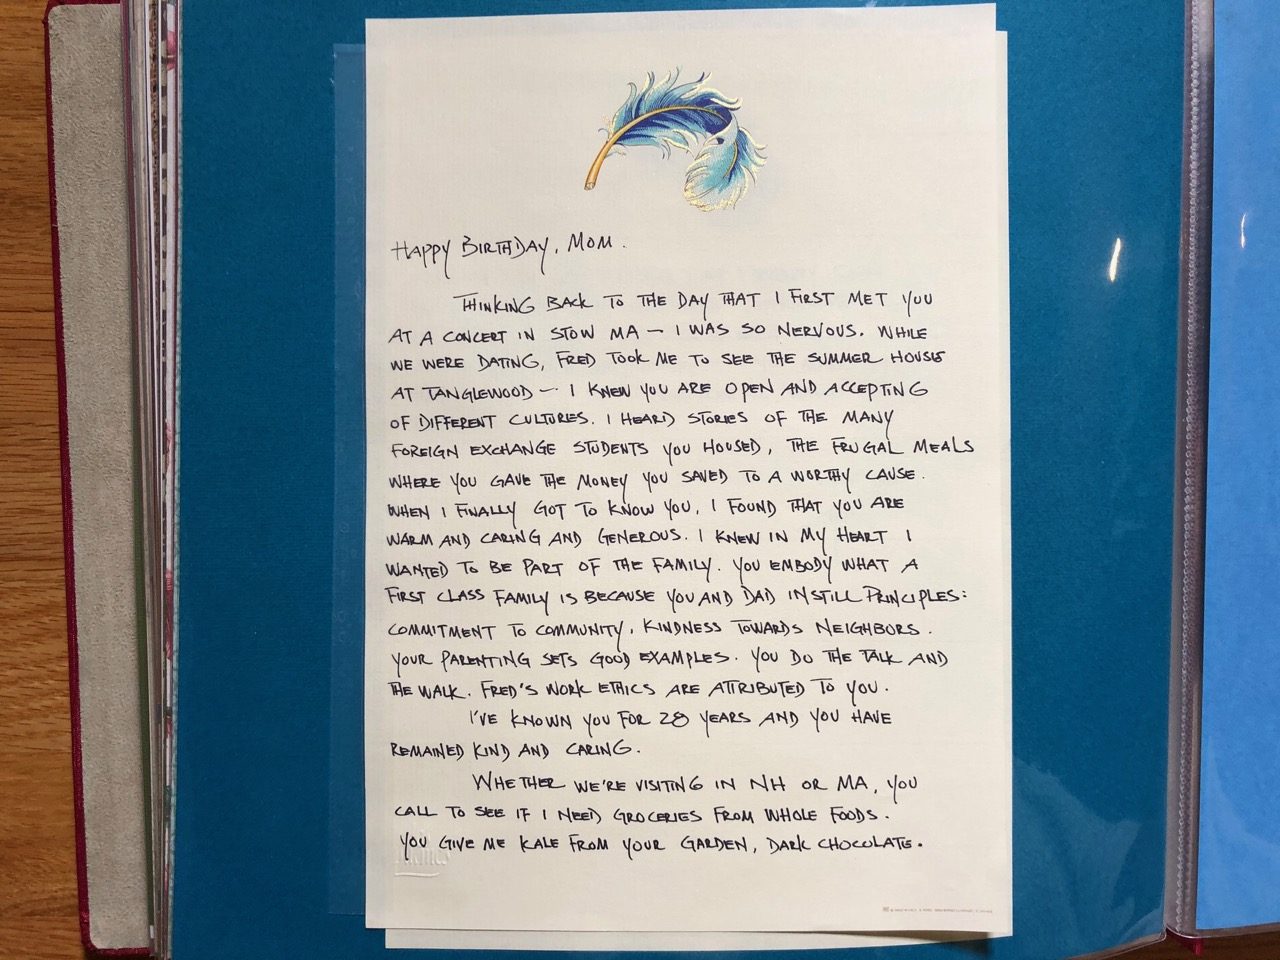 HAPPY BIRTHDAY, MOM.
THINKING BACK TO THE DAY THAT I FIRST MET YOU
AT A CONCERT IN STOW MA — I WAS SO NERVOUS. WHILE
WE WERE DATING, FRED TOOK ME TO SEE THE SUMMER HOUSE
AT TANGLEWOOD — I KNEW YOU ARE OPEN AND ACCEPTING
OF DIFFERENT CULTURES. I HEARD STORIES OF THE MANY
FOREIGN EXCHANGE STUDENTS YOU HOUSED, THE FRUGAL MEALS
WHERE YOU GAVE THE MONEY YOU SAVED TO A WORTHY CAUSE.
WHEN I FINALLY GOT TO KNOW YOU, I FOUND THAT YOU ARE
WARM AND CARING AND GENEROUS. I KNEW IN MY HEART I
WANTED TO BE PART OF THE FAMILY. YOU EMBODY WHAT A
FIRST CLASS FAMILY IS BECAUSE YOU AND DAD INSTILL PRINCIPLES:
COMMITMENT TO COMMUNITY, KINDNESS TOWARDS NEIGHBORS.
YOUR PARENTING SETS GOOD EXAMPLES. YOU DO THE TALK AND
THE WALK. FRED'S WORK ETHICS ARE ATTRIBUTED TO YOU.
I'VE KNOWN YOU FOR 28 YEARS AND YOU HAVE
REMAINED KIND AND CARING.
WHETHER WE'RE VISITING IN NH OR MA, YOU
CALL TO SEE IF I NEED GROCERIES FROM WHOLE FOODS.
YOU GIVE ME KALE FROM YOUR GARDEN, DARK CHOCOLATE.